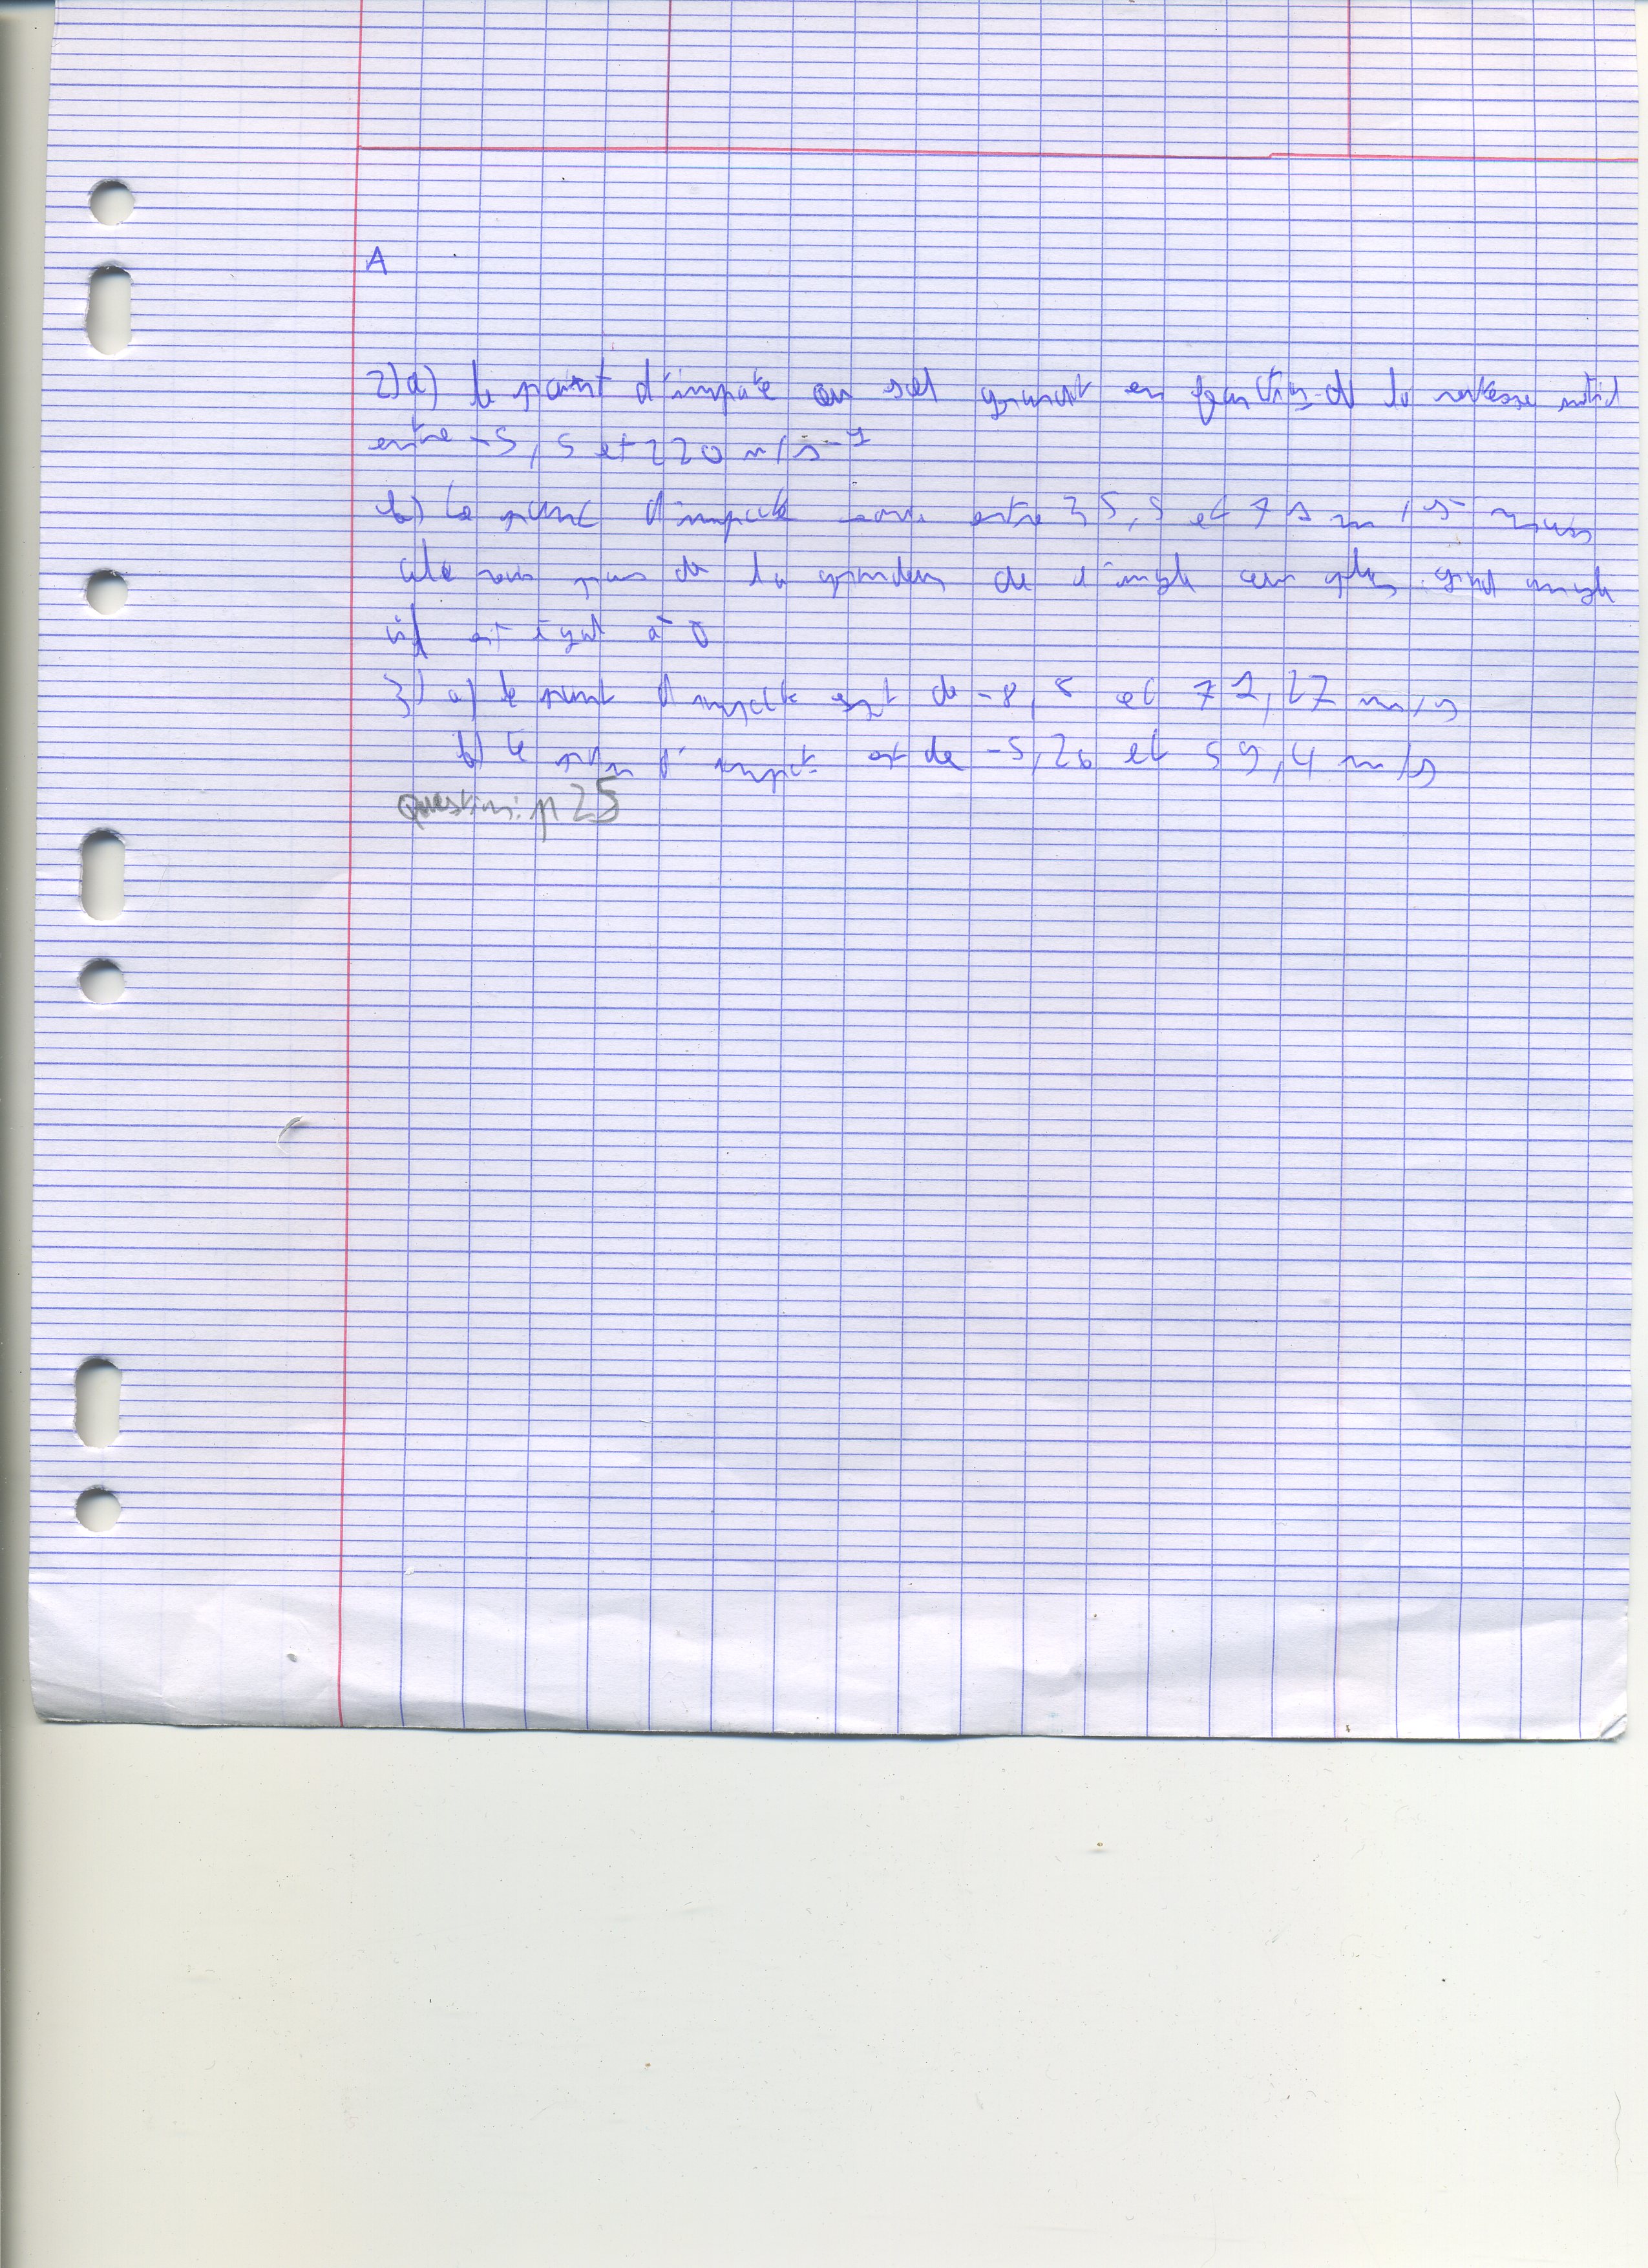 A
2)a) le point d'impacte au sol grandit en fonction de la vitesse
entre -5,5 et 220 m/s-1
b) Le point d'impacte entre 35,5 et 71 m/s
pas de la grandeur de l'angle plus grand angle
il est égal à 0
3) a) le point d'impacte est de -8,5 et 71,27 m/s
b) le d'impact est de -5,26 et 59,4 m/s
Question: p 25